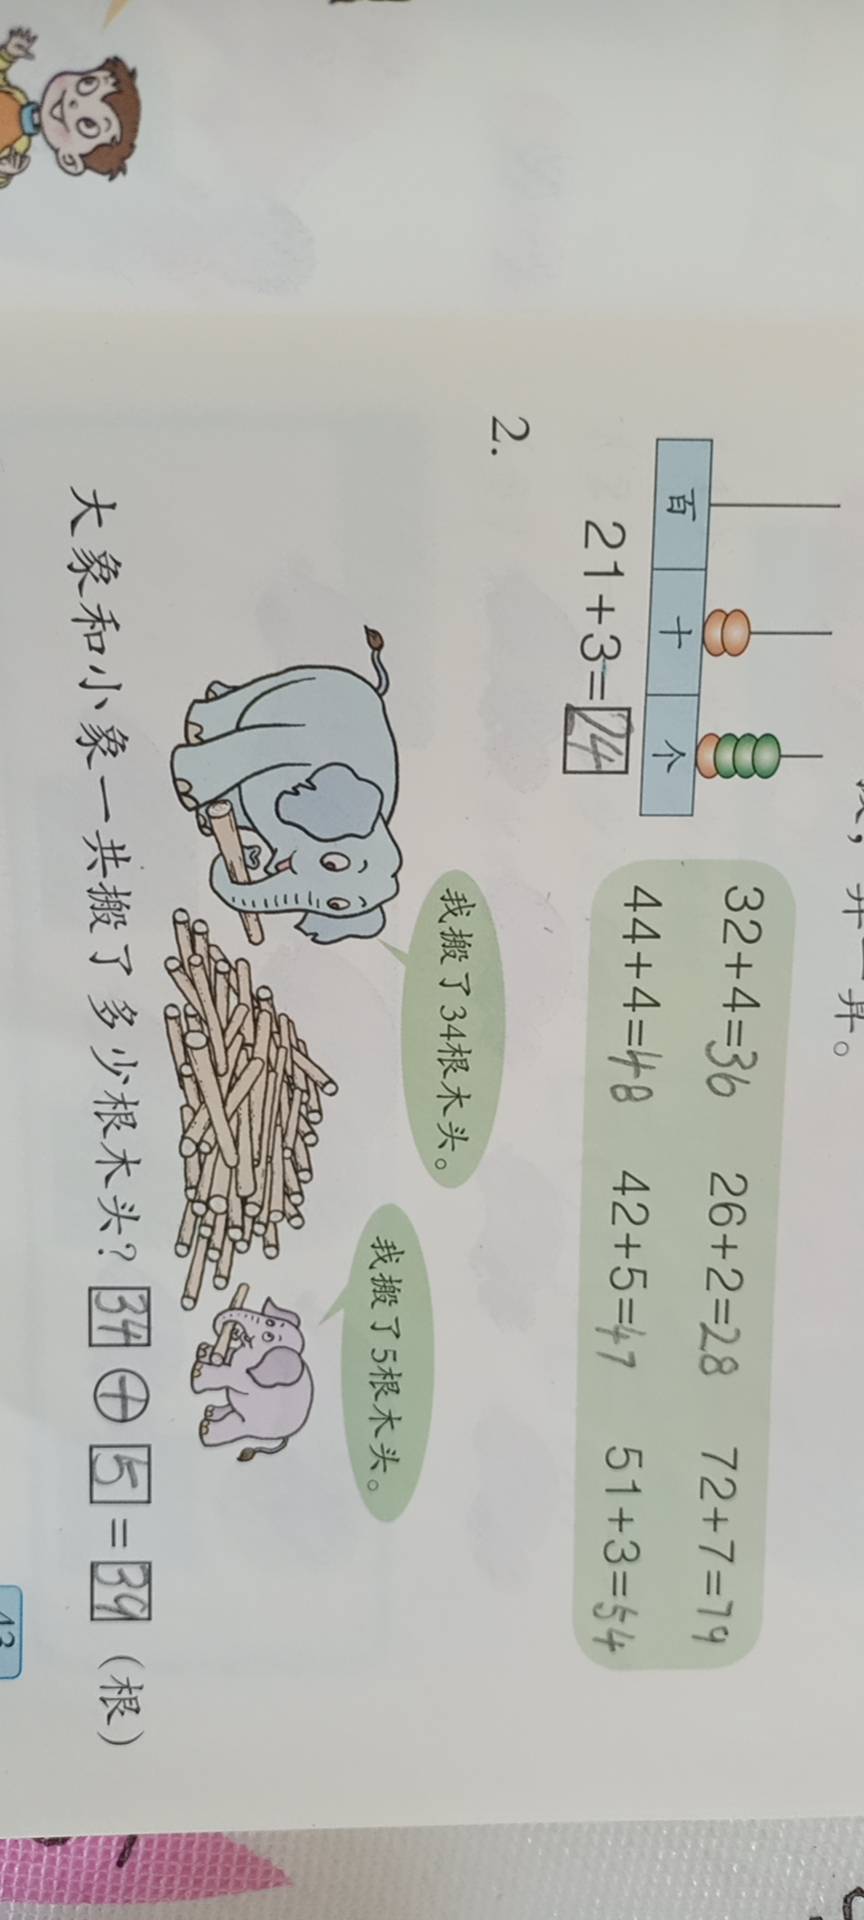 算一算。
百 十 个
21+3=24
32+4=36 26+2=28 72+7=79
44+4=48 42+5=47 51+3=54
2.
我搬了34根木头。
我搬了5根木头。
大象和小象一共搬了多少根木头？34+5=39（根）